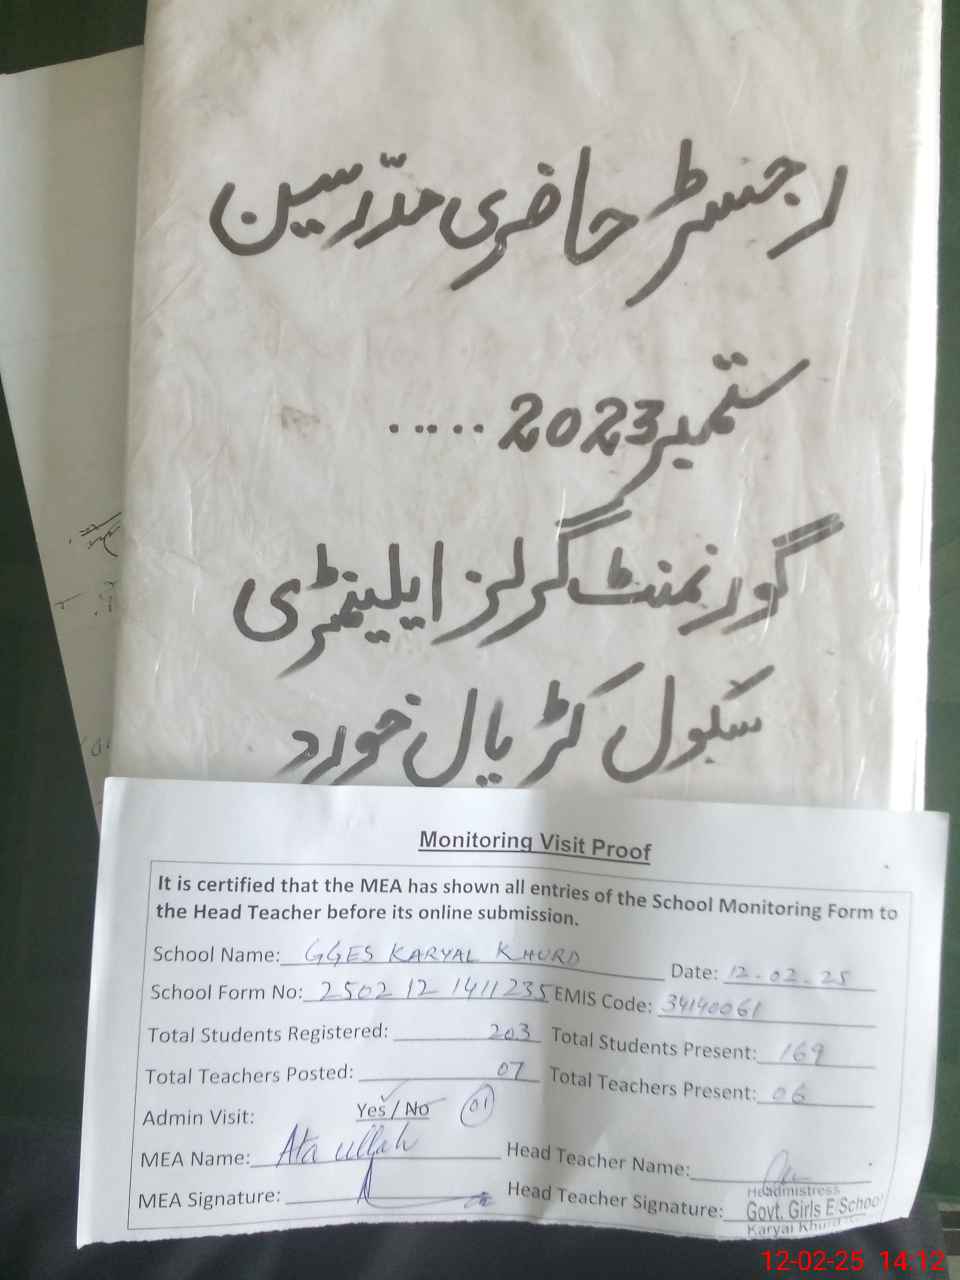 رجسٹر حاضری مدّرسین
ستمبر 2023 .....
گورنمنٹ گرلز ایلیمنٹری
سکول کڑیال خورد
Monitoring Visit Proof
It is certified that the MEA has shown all entries of the School Monitoring Form to
the Head Teacher before its online submission.
School Name: GGES KARYAL KHURD Date: 12.02.25
School Form No: 2502 12 1411235 EMIS Code: 34140061
Total Students Registered: 203 Total Students Present: 169
Total Teachers Posted: 07 Total Teachers Present: 06
Admin Visit: Yes / No 01
MEA Name: Ata ullah Head Teacher Name:
MEA Signature: Head Teacher Signature:
Headmistress
Govt. Girls E/School
Karyal Khurd
12-02-25 14:12